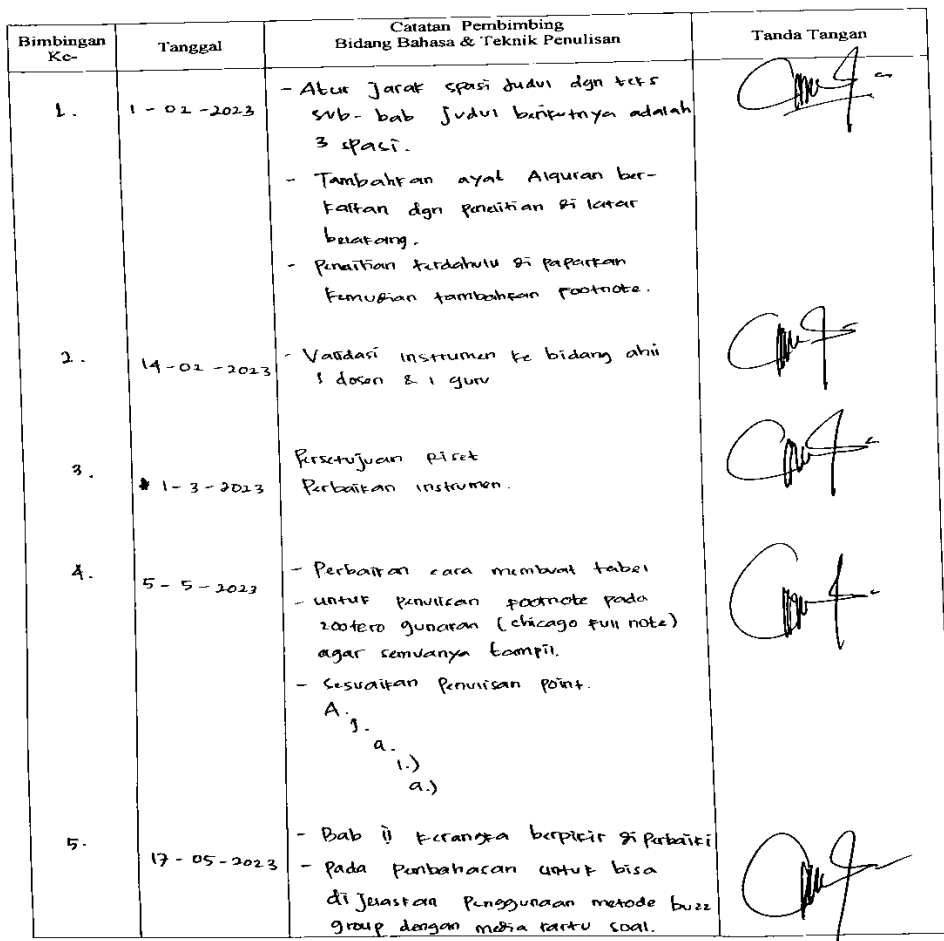 Bimbingan Ke-
Tanggal
Catatan Pembimbing
Bidang Bahasa & Teknik Penulisan
Tanda Tangan
1.
1 - 02 - 2023
- Atur Jarak spasi Judul dgn teks
sub-bab Judul berikutnya adalah
3 spasi.
- Tambahkan ayat Alquran ber-
kaitan dgn penelitian di latar
belakang.
- Penelitian terdahulu di paparkan
kemudian tambahkan footnote.
2.
14 - 02 - 2023
- Validasi instrumen ke bidang ahli
1 dosen & 1 guru
3.
1 - 3 - 2023
Persetujuan Riset
Perbaikan instrumen.
4.
5 - 5 - 2023
- Perbaikan cara membuat tabel
- untuk penulisan footnote pada
zootero gunakan (chicago full note)
agar semuanya tampil.
- Sesuaikan Penulisan Point.
A.
1.
a.
1.)
a.)
5.
17 - 05 - 2023
- Bab ii kerangka berpikir di Perbaiki
- Pada Penbahasan untuk bisa
di Jelaskan Penggunaan metode buzz
group dengan media kartu soal.